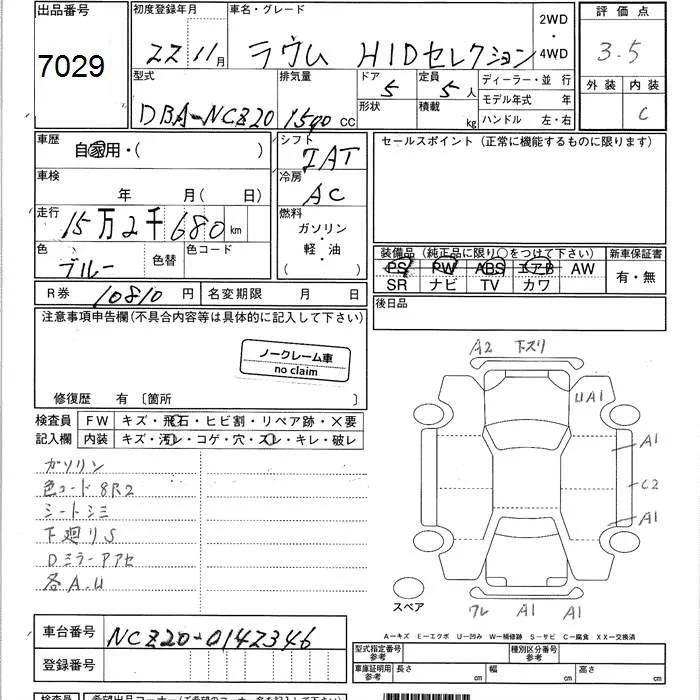 出品番号
7029
初度登録年月
22 11月
車名・グレード
ラウム HIDセレクション
2WD
・
4WD
評価点
3.5
型式
DBA-NCZ20
排気量
1500 CC
ドア
5
形状
定員
5人
積載
kg
ディーラー・並 行
モデル年式 年
ハンドル 左・右
外装 内装
C
車歴
自家用・( )
シフト
IAT
セールスポイント(正常に機能するものに限ります)
車検
年 月(日)
冷房
AC
走行
15万2千680km
燃料
ガソリン
・
軽・油
( )
色
ブルー
色替
色コード
装備品(純正品に限り○をつけて下さい)
PS PW ABS エアB AW
SR ナビ TV カワ
新車保証書
有・無
R券 10810円
名変期限 月 日
後日品
注意事項申告欄(不具合内容等は具体的に記入して下さい)
ノークレーム車
no claim
修復歴 有〔箇所 〕
A2 下スリ
UA1
A1
C2
A1
ワレ A1 A1
スペア
検査員
記入欄
FW キズ・飛石・ヒビ割・リペア跡・×要
内装 キズ・汚レ・コゲ・穴・スレ・キレ・破レ
ガソリン
色コード 8R2
シートシミ
下廻りS
Dミラーアアセ
各A.U
車台番号
NCZ20-0142346
登録番号
A－キズ E－エクボ U－凹み W－補修跡 S－サビ C－腐食 XX－交換済
型式指定番号
参考
種別区分番号
参考
車庫証明用
参考
長さ cm
幅 cm
高さ cm
検査員
希望出品コーナー